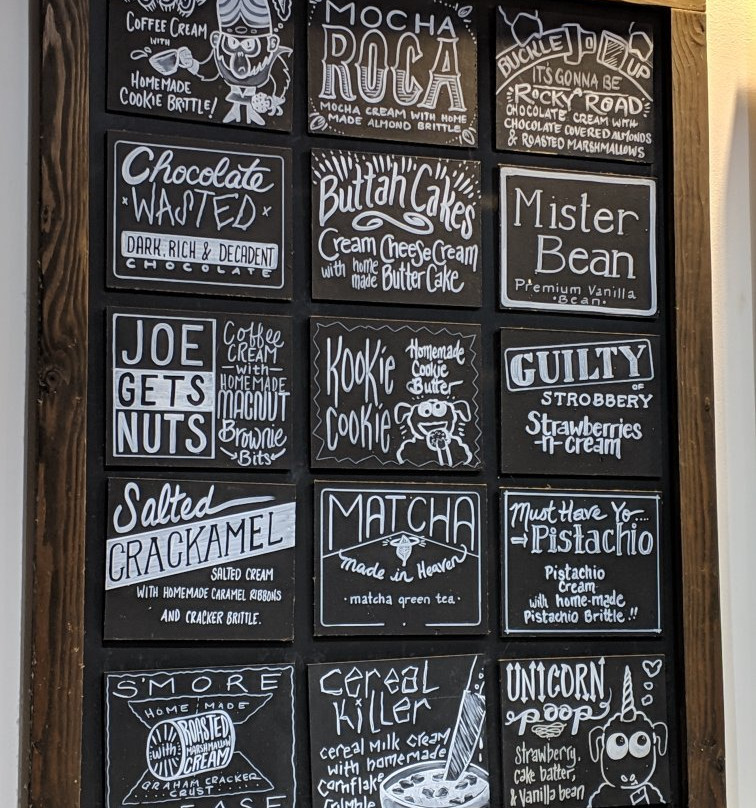 COFFEE CREAM
WITH
HOMEMADE
COOKIE BRITTLE!
MOCHA
ROCA
MOCHA CREAM WITH HOME
MADE ALMOND BRITTLE
BUCKLE UP
IT'S GONNA BE
ROCKY ROAD
CHOCOLATE CREAM WITH
CHOCOLATE COVERED ALMONDS
& ROASTED MARSHMALLOWS
Chocolate
WASTED
DARK, RICH & DECADENT
CHOCOLATE
Buttah Cakes
Cream Cheese Cream
with home
made Butter Cake
Mister
Bean
Premium Vanilla
·Bean·
JOE
GETS
NUTS
Coffee
CREAM
—with—
HOMEMADE
MACNUT
Brownie
Bits
Kookie
Cookie
Homemade
Cookie
Butter
GUILTY
OF
STROBBERY
Strawberries
-n-cream
Salted
CRACKAMEL
SALTED CREAM
WITH HOMEMADE CARAMEL RIBBONS
AND CRACKER BRITTLE.
MATCHA
made in Heaven
·matcha green tea·
Must Have Yo....
Pistachio
Pistachio
Cream
with home-made
Pistachio Brittle!!
S'MORE
HOME MADE
with
ROASTED
MARSHMALLOW
CREAM
GRAHAM CRACKER
CRUST
cereal
killer
cereal milk cream
with homemade
cornflake
UNICORN
poop
Strawberry,
cake batter,
& Vanilla bean